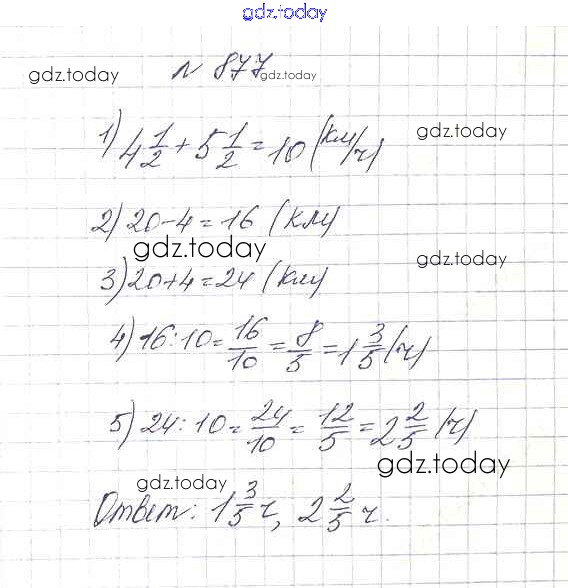 gdz.today
gdz.today № 877 gdz.today
1) 4 1/2 + 5 1/2 = 10 (км/ч) gdz.today
2) 20 - 4 = 16 (км)
gdz.today gdz.today
3) 20 + 4 = 24 (км)
4) 16 : 10 = 16/10 = 8/5 = 1 3/5 (ч)
5) 24 : 10 = 24/10 = 12/5 = 2 2/5 (ч)
gdz.today
gdz.today
Ответ: 1 3/5 ч, 2 2/5 ч.